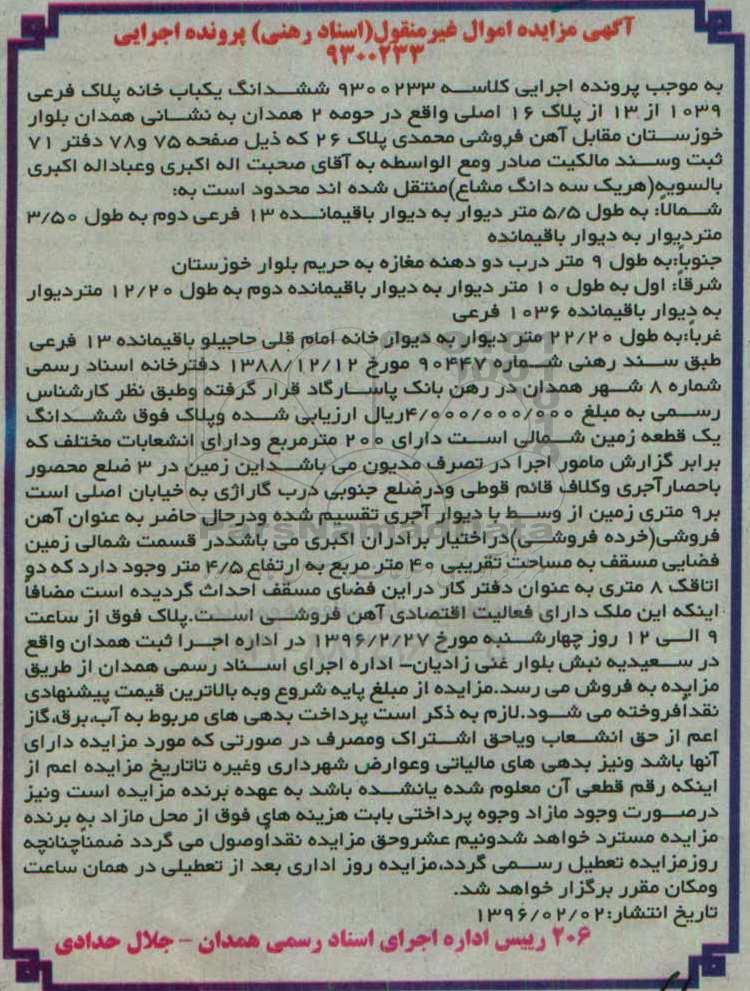 آگهی مزایده اموال غیرمنقول(اسناد رهنی) پرونده اجرایی
۹۳۰۰۲۳۳
به موجب پرونده اجرایی کلاسه ۹۳۰۰۲۳۳ ششدانگ یکباب خانه پلاک فرعی
۱۰۳۹ از ۱۳ از پلاک ۱۶ اصلی واقع در حومه ۲ همدان به نشانی همدان بلوار
خوزستان مقابل آهن فروشی محمدی پلاک ۲۶ که ذیل صفحه ۷۵ و۷۸ دفتر ۷۱
ثبت وسند مالکیت صادر ومع الواسطه به آقای صحبت اله اکبری وعباداله اکبری
بالسویه(هریک سه دانگ مشاع)منتقل شده اند محدود است به:
شمالاً: به طول ۵/۵ متر دیوار به دیوار باقیمانده ۱۳ فرعی دوم به طول ۳/۵۰
متردیوار به دیوار باقیمانده
جنوباً:به طول ۹ متر درب دو دهنه مغازه به حریم بلوار خوزستان
شرقاً: اول به طول ۱۰ متر دیوار به دیوار باقیمانده دوم به طول ۱۲/۲۰ متردیوار
به دیوار باقیمانده ۱۰۳۶ فرعی
غرباً:به طول ۲۲/۲۰ متر دیوار به دیوار خانه امام قلی حاجیلو باقیمانده ۱۳ فرعی
طبق سند رهنی شماره ۹۰۴۴۷ مورخ ۱۳۸۸/۱۲/۱۲ دفترخانه اسناد رسمی
شماره ۸ شهر همدان در رهن بانک پاسارگاد قرار گرفته وطبق نظر کارشناس
رسمی به مبلغ ۴/۰۰۰/۰۰۰/۰۰۰ریال ارزیابی شده وپلاک فوق ششدانگ
یک قطعه زمین شمالی است دارای ۲۰۰ مترمربع ودارای انشعابات مختلف که
برابر گزارش مامور اجرا در تصرف مدیون می باشداین زمین در ۳ ضلع محصور
باحصارآجری وکلاف قائم قوطی ودرضلع جنوبی درب گاراژی به خیابان اصلی است
بر۹ متری زمین از وسط با دیوار آجری تقسیم شده ودرحال حاضر به عنوان آهن
فروشی(خرده فروشی)دراختیار برادران اکبری می باشددر قسمت شمالی زمین
فضایی مسقف به مساحت تقریبی ۴۰ متر مربع به ارتفاع ۴/۵ متر وجود دارد که دو
اتاقک ۸ متری به عنوان دفتر کار دراین فضای مسقف احداث گردیده است مضافاً
اینکه این ملک دارای فعالیت اقتصادی آهن فروشی است.پلاک فوق از ساعت
۹ الی ۱۲ روز چهارشنبه مورخ ۱۳۹۶/۲/۲۷ در اداره اجرا ثبت همدان واقع
در سعیدیه نبش بلوار غنی زادیان– اداره اجرای اسناد رسمی همدان از طریق
مزایده به فروش می رسد.مزایده از مبلغ پایه شروع وبه بالاترین قیمت پیشنهادی
نقداًفروخته می شود.لازم به ذکر است پرداخت بدهی های مربوط به آب،برق،گاز
اعم از حق انشعاب ویاحق اشتراک ومصرف در صورتی که مورد مزایده دارای
آنها باشد ونیز بدهی های مالیاتی وعوارض شهرداری وغیره تاتاریخ مزایده اعم از
اینکه رقم قطعی آن معلوم شده یانشده باشد به عهده برنده مزایده است ونیز
درصورت وجود مازاد وجوه پرداختی بابت هزینه های فوق از محل مازاد به برنده
مزایده مسترد خواهد شدونیم عشروحق مزایده نقداًوصول می گردد ضمناًچنانچه
روزمزایده تعطیل رسمی گردد،مزایده روز اداری بعد از تعطیلی در همان ساعت
ومکان مقرر برگزار خواهد شد.
تاریخ انتشار:۱۳۹۶/۰۲/۰۲
۲۰۶ رییس اداره اجرای اسناد رسمی همدان – جلال حدادی